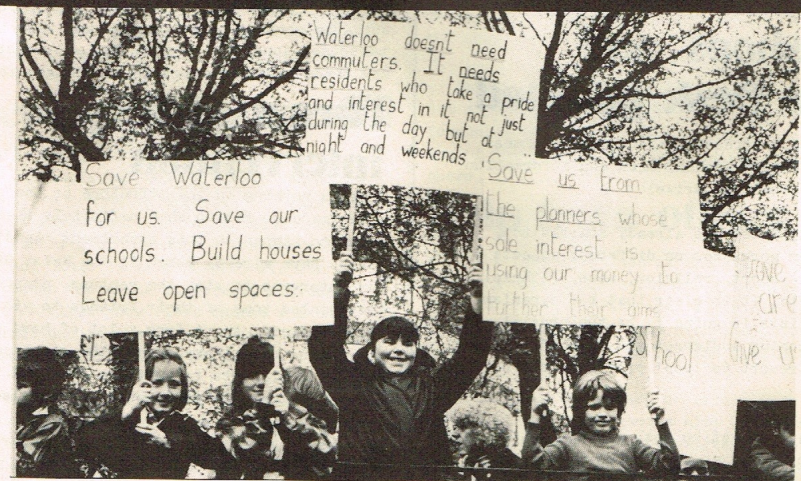 Waterloo doesnt need
commuters. It needs
residents who take a pride
and interest in it not just
during the day but at
night and weekends
Save Waterloo
for us. Save our
schools. Build houses
Leave open spaces.
Save us from
the planners whose
sole interest is
using our money to
further their aims
are
Give us